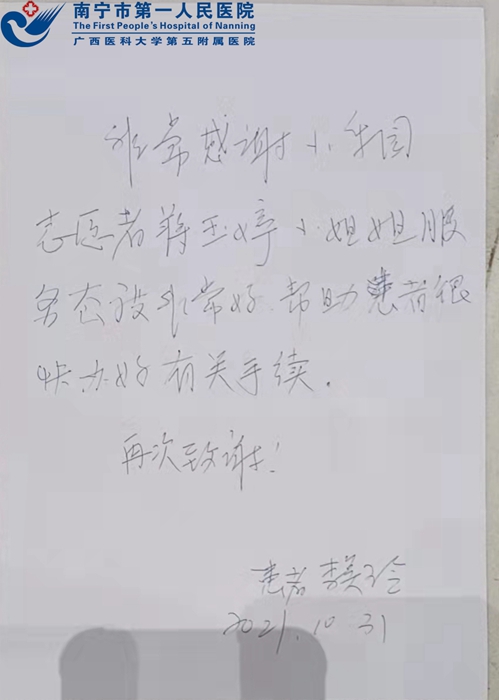 南宁市第一人民医院
The First People's Hospital of Nanning
广西医科大学第五附属医院
非常感谢小乐园
志愿者蒋玉婷小姐姐服
务态度非常好帮助患者很
快办好有关手续.
再次致谢!
患者 李
2021.10 31